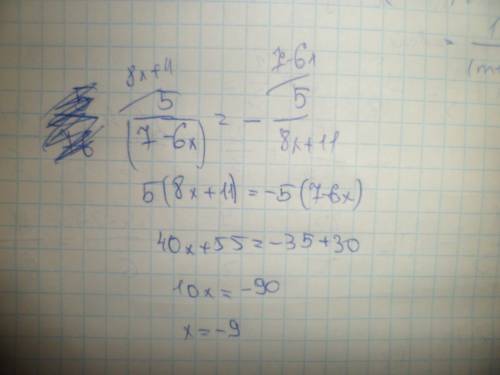 8x+11 7-6x
5/(7-6x) = - 5/8x+11
5(8x+11)=-5(7-6x)
40x+55=-35+30
10x=-90
x=-9